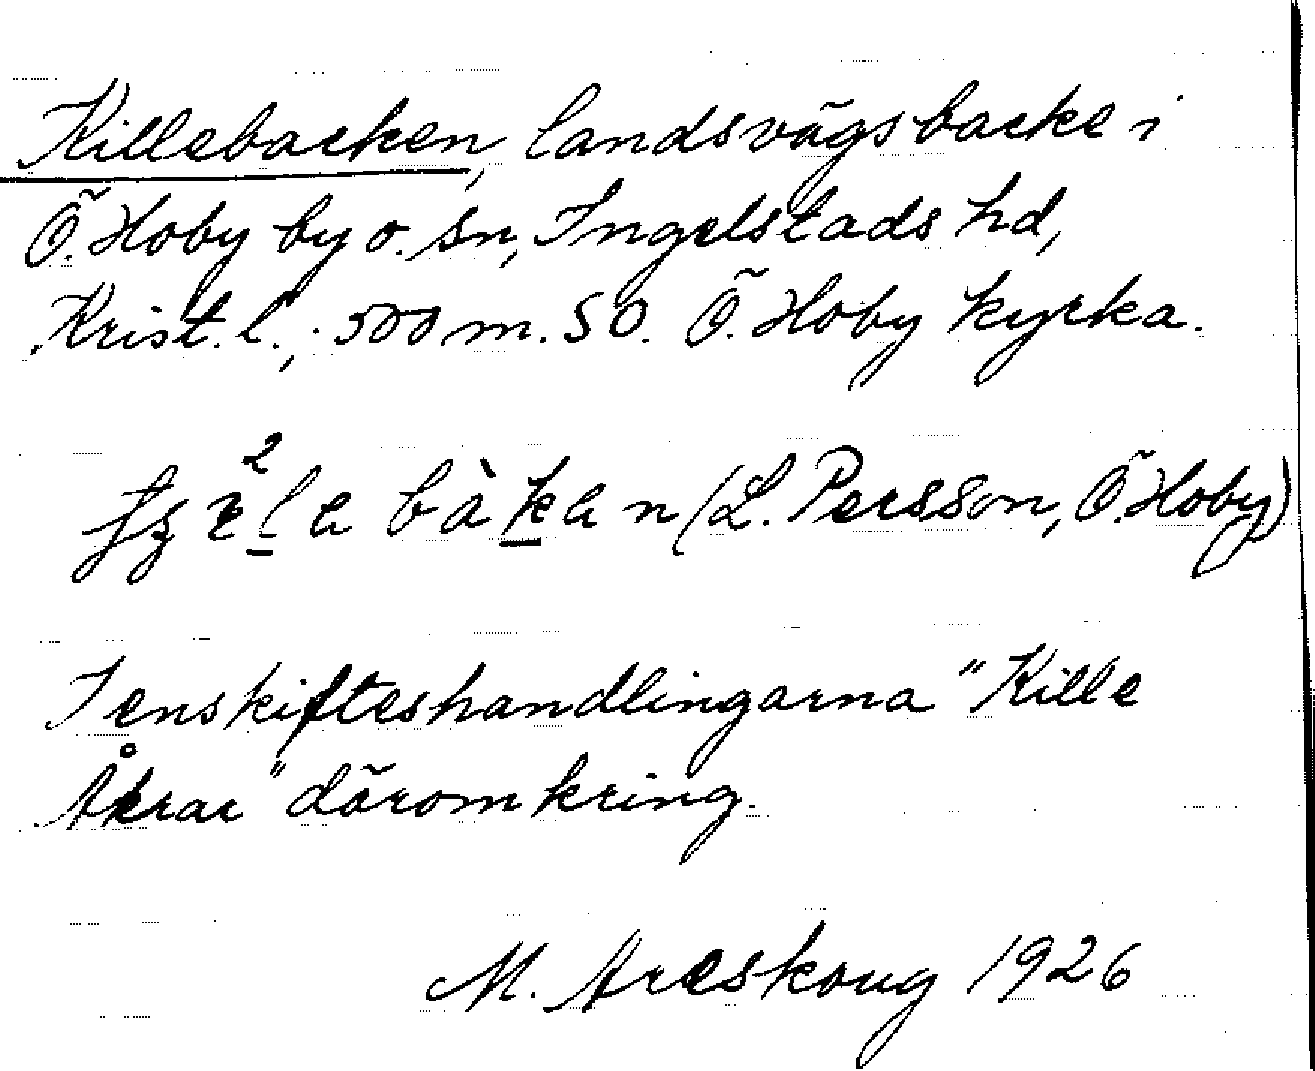 Killebacken, landsvägsbacke i
Ö. Hoby by o. sn, Ingelstads hd,
Krist. l.; 500 m. SO. Ö. Hoby kyrka.
(L. Persson, Ö. Hoby)
I enskifteshandlingarna "Kille
Åkrar" däromkring.
M. Areskoug 1926